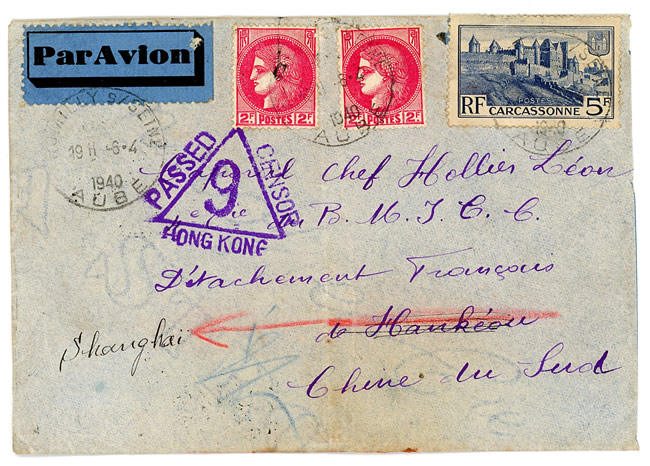 Par Avion
RF
2F POSTES 2F
RF
2F POSTES 2F
POSTES
RF CARCASSONNE 5F
S/SEINE
19 H -6-4
1940
AUBE
1940
AUBE
PASSED
CENSOR
9
HONG KONG
Chef Hollier Léon
du B. M. I. C. C.
Détachement Français
de Hankéou
Shanghai
Chine du Sud